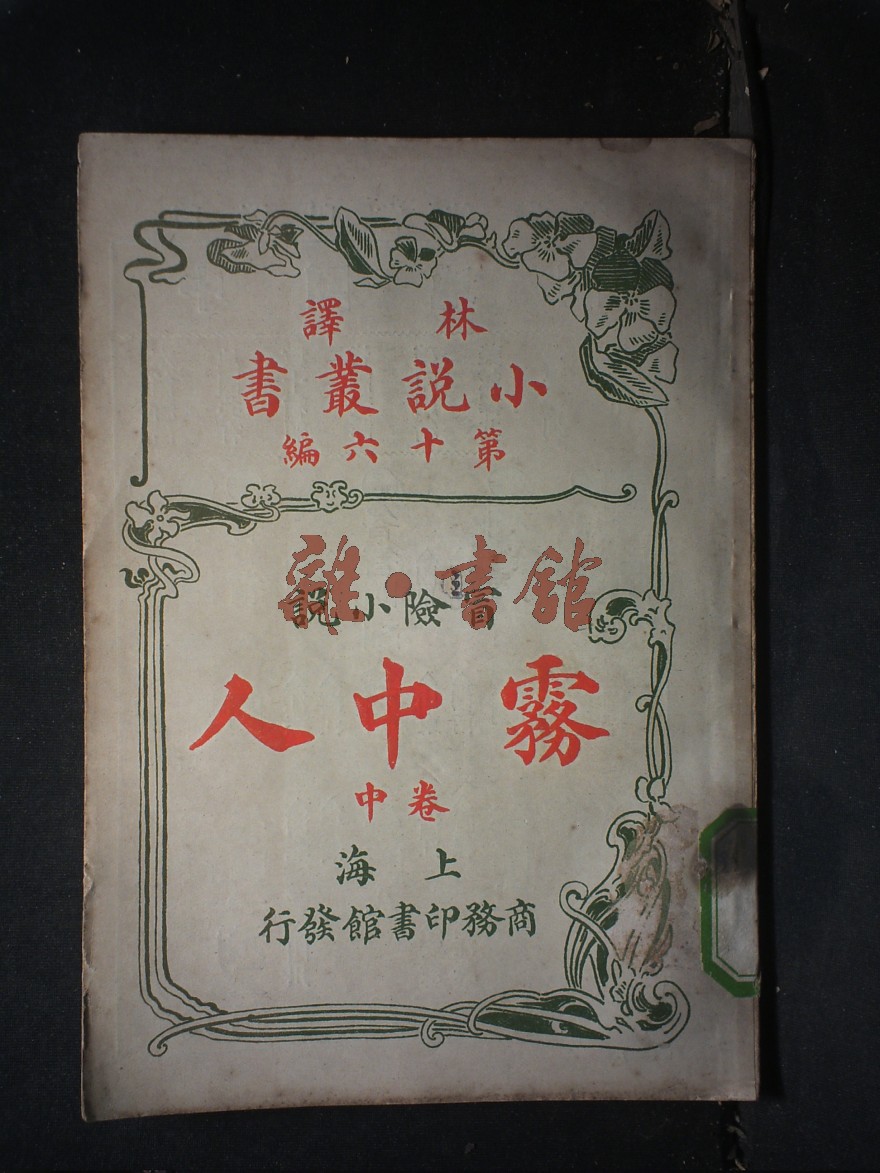 林譯
小說叢書
第十六編
雜·書館
冒險小說
霧中人
卷中
上海
商務印書館發行